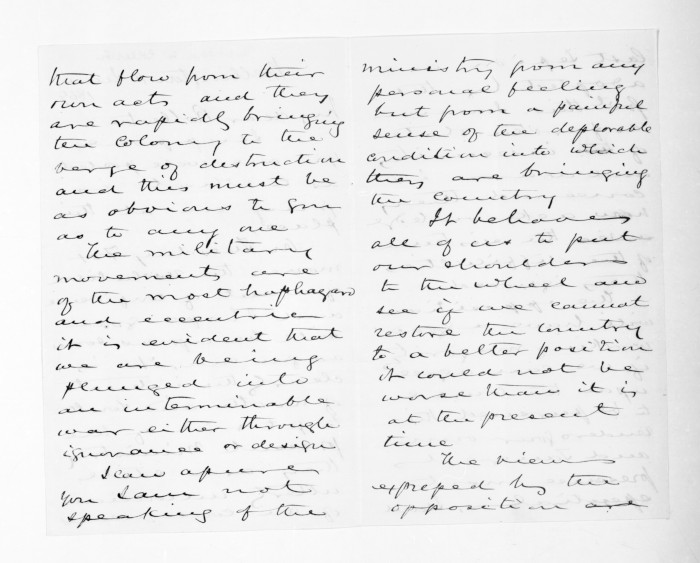 that flow from their
own acts and they
are rapidly bringing
the Colony to the
verge of destruction
and this must be
as obvious to you
as to any one
The military
movements are
of the most haphazard
and eccentric
it is evident that
we are being
plunged into
an interminable
war either through
ignorance or design
I can assure
you I am not
speaking of the
ministry from any
personal feeling
but from a painful
sense of the deplorable
condition into which
they are bringing
the country
It behoves
all of us to put
our shoulders
to the wheel and
see if we cannot
restore the country
to a better position
it could not be
worse than it is
at the present
time
The views
expressed by the
opposition are